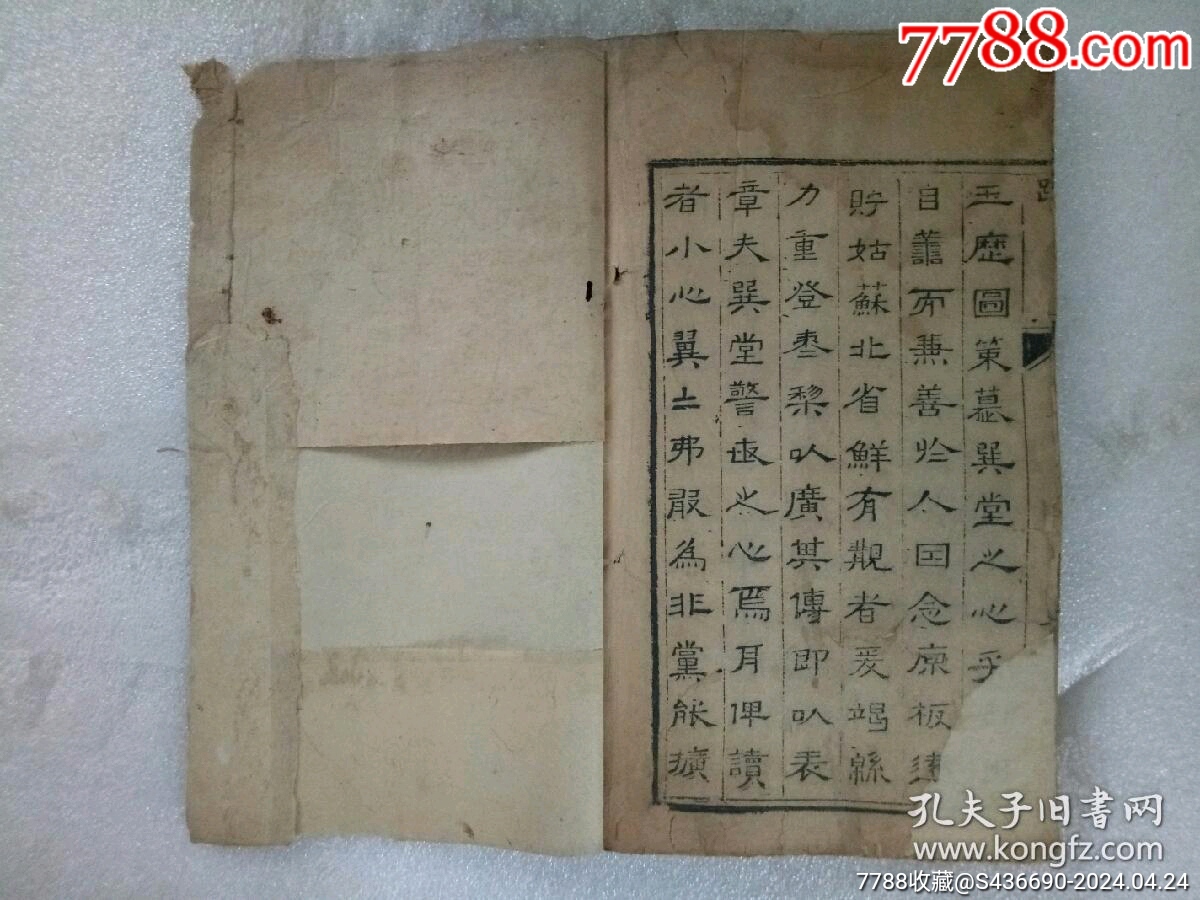 7788.com
玉歷圖策墓巽堂之心乎
自善而兼善於人因念原板遠
貯姑蘇北省鮮有觀者爰竭綿
力重登棗梨以廣其傳即以表
章夫巽堂警世之心焉耳俾讀
者小心翼〻弗敢為非黨能擴
孔夫子旧书网
www.kongfz.com
7788收藏@S436690-2024.04.24